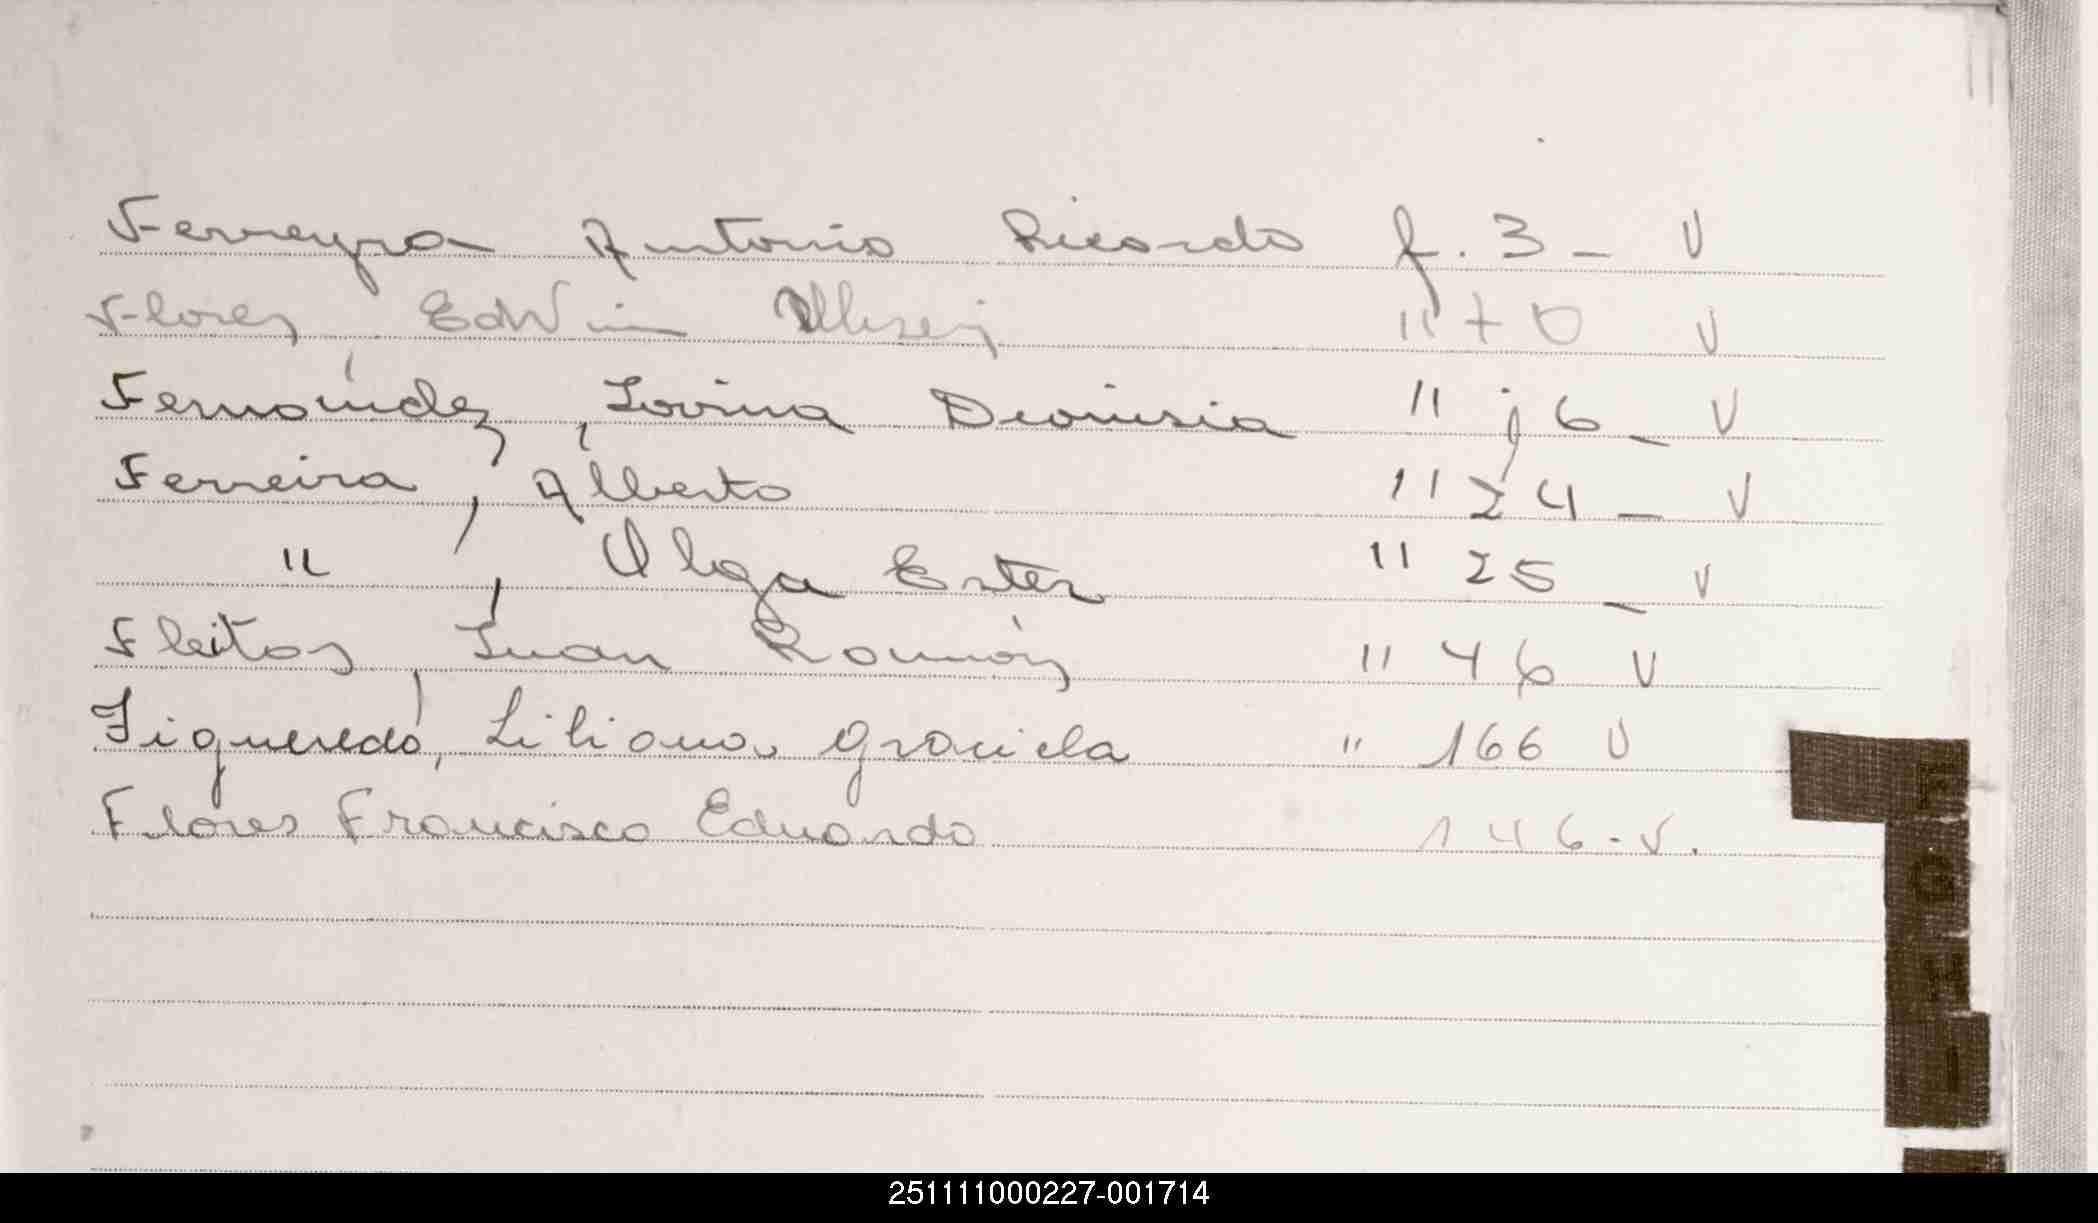 Ferreyra Antonio Ricardo f. 3 - V
Flores Edwin Ulisej " 70 V
Fernández, Lovina Dionisia " 16 - V
Ferreira, Alberto " 24 - V
" , Olga Ester " 25 - V
Fleitas, Juan Ramón " 46 V
Figueredo, Liliana Graciela " 166 V
Flores Francisco Eduardo 146 - V.
F
G
H
I
251111000227-001714